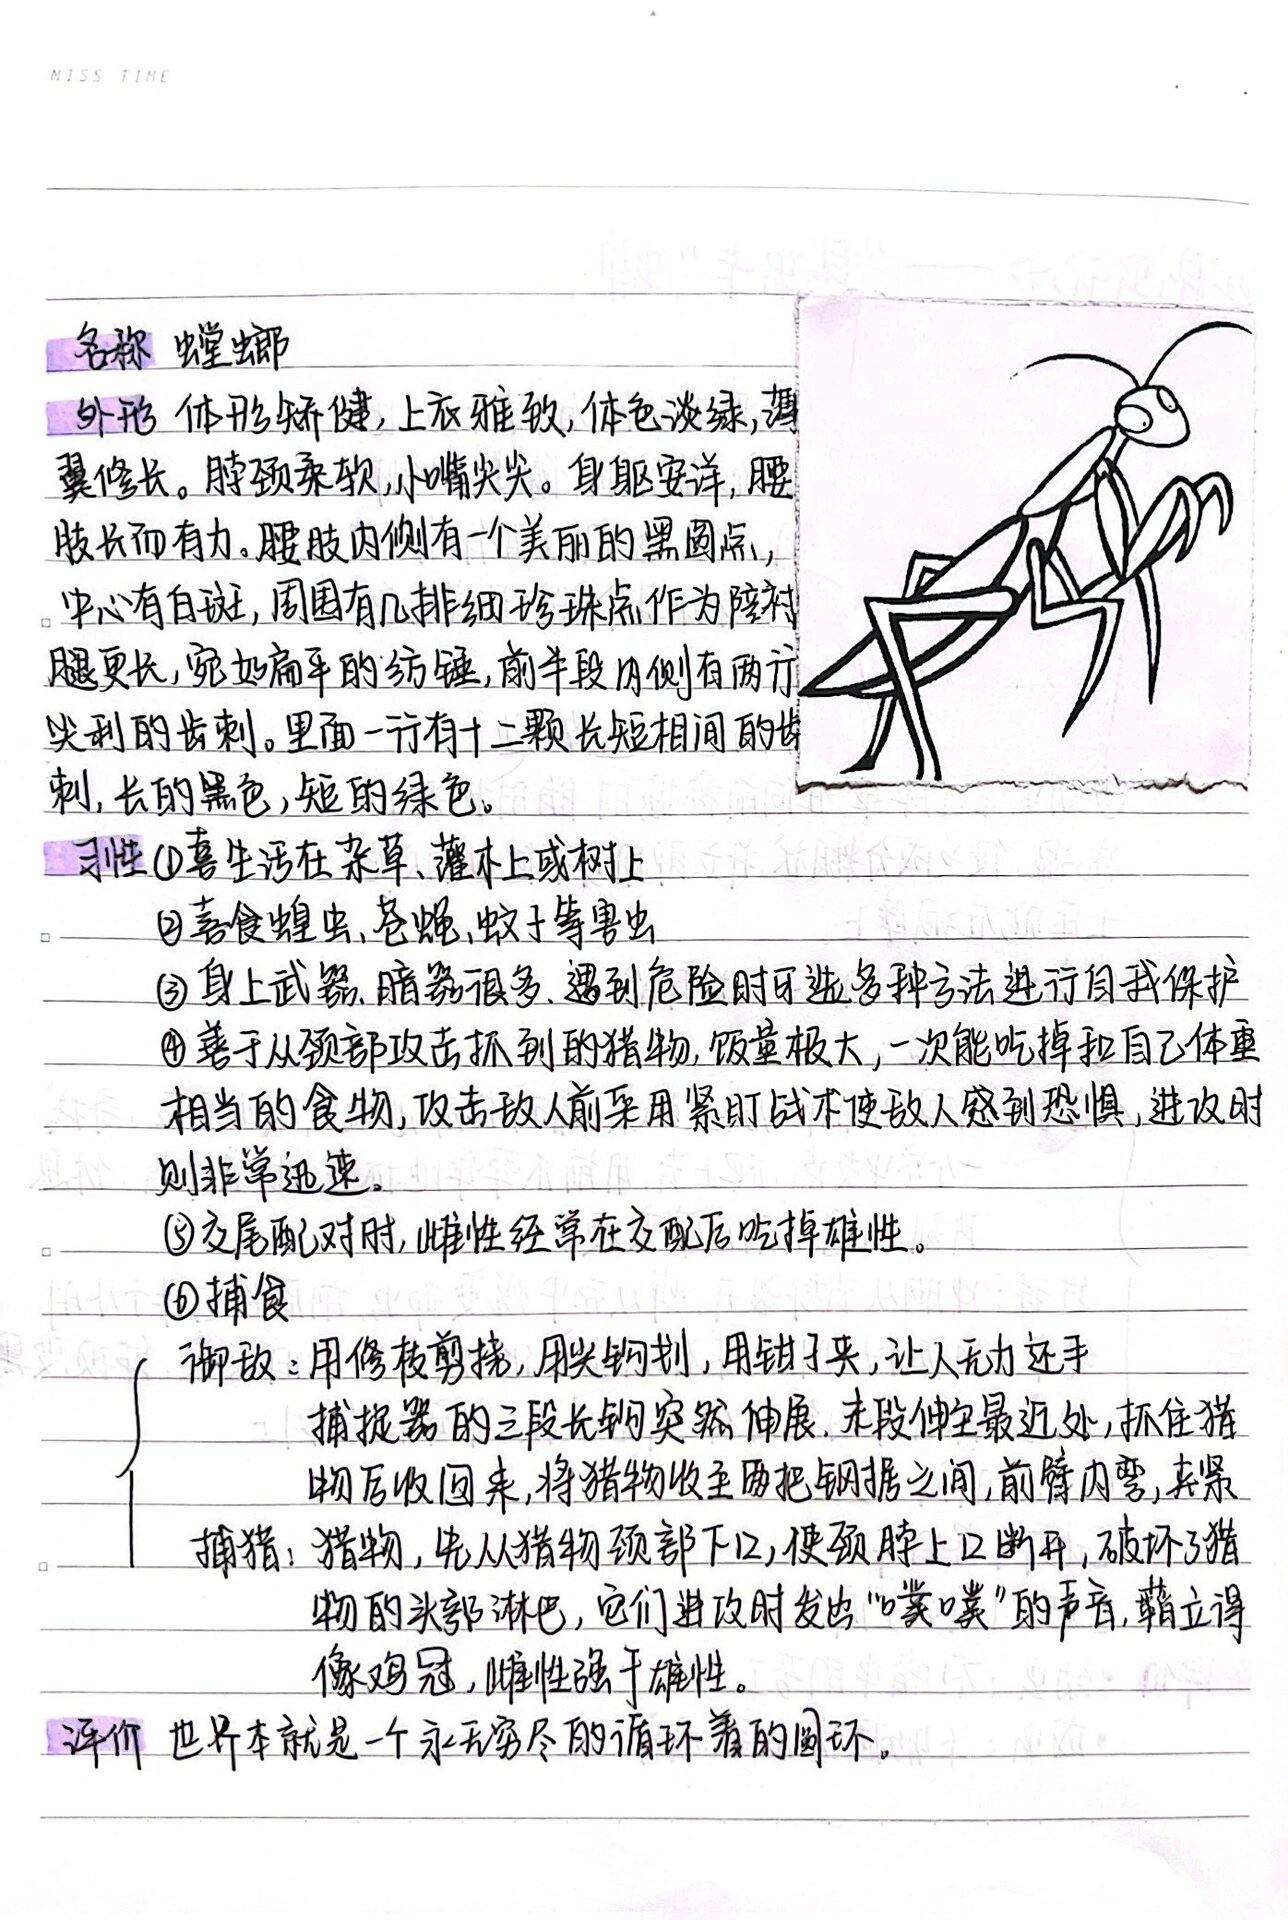 MISS TIME
名称 螳螂
外形 体形矫健,上衣雅致,体色淡绿,薄
翼修长。脖颈柔软,小嘴尖尖。身躯安详,腰
肢长而有力。腰肢内侧有一个美丽的黑圆点,
中心有白斑,周围有几排细珍珠点作为陪衬
腿更长,宛如扁平的纺锤,前半段内侧有两行
尖利的齿刺。里面一行有十二颗长短相间的齿
刺,长的黑色,短的绿色。
习性①喜生活在杂草、灌木上或树上
②喜食蝗虫、苍蝇、蚊子等害虫
③身上武器、暗器很多、遇到危险时可选多种方法进行自我保护
④善于从颈部攻击抓到的猎物,饭量极大,一次能吃掉和自己体重
相当的食物,攻击敌人前采用紧盯战术使敌人感到恐惧,进攻时
则非常迅速。
⑤交尾配对时,雌性经常在交配后吃掉雄性。
⑥捕食
御敌:用修枝剪挠,用尖钩划,用钳子夹,让人无力还手
捕捉器的三段长钩突然伸展.末段伸至最近处,抓住猎
物后收回来,将猎物收至两把钢锯之间,前臂内弯,夹紧
捕猎:猎物,先从猎物颈部下口,使颈脖上口断开,破坏了猎
物的头部淋巴,它们进攻时发出"噗噗"的声音,翼立得
像鸡冠,雌性强于雄性。
评价 世界本就是一个永无穷尽的循环着的圆环。